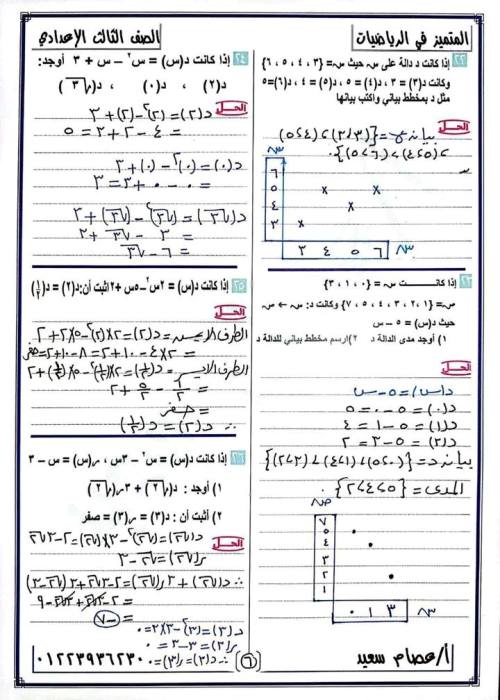 المتميز في الرياضيات
الصف الثالث الإعدادي
٢٢ إذا كانت د دالة على س حيث س = {٣ ، ٤ ، ٥ ، ٦}
وكانت د(٣) = ٣ ، د(٤) = ٥ ، د(٥) = ٤ ، د(٦) = ٥
مثل د بمخطط بياني واكتب بيانها
الحل
بيان د = {(٣،٣) ، (٤،٥)
، (٥،٤) ، (٦،٥)}
٦
٥
٤
٣
٣ ٤ ٥ ٦ س
٢٣ إذا كانت س = {٠ ، ١ ، ٣}
ص = {١ ، ٢ ، ٣ ، ٤ ، ٥ ، ٧} وكانت د: س ← ص
حيث د(س) = ٥ – س
١) أوجد مدى الدالة د ٢) ارسم مخطط بياني للدالة د
الحل
د(س) = ٥ – س
د(٠) = ٥ – ٠ = ٥
د(١) = ٥ – ١ = ٤
د(٣) = ٥ – ٣ = ٢
بيان د = {(٠،٥) ، (١،٤) ، (٣،٢)}
المدى = {٥،٤،٢}
ص
٧
٥
٤
٣
٢
١
٠ ١ ٣ س
٢٤ إذا كانت د(س) = س٢ – س + ٣ أوجد:
د(٢) ، د(٠) ، د(√٣)
الحل
د(٢) = (٢)٢ – (٢) + ٣
= ٤ – ٢ + ٣ = ٥
د(٠) = (٠)٢ – (٠) + ٣
= ٠ – ٠ + ٣ = ٣
د(√٣) = (√٣)٢ – (√٣) + ٣
= ٣ – √٣ + ٣
= ٦ – √٣
٢٥ إذا كانت د(س) = ٢س٢ – ٥س + ٢ اثبت أن: د(٢) = د(١/٢)
الحل
الطرف الأيمن = د(٢) = ٢×(٢)٢ – ٥×٢ + ٢
= ٢×٤ – ١٠ + ٢ = ٨ – ١٠ + ٢ = صفر
الطرف الأيسر = د(١/٢) = ٢×(١/٢)٢ – ٥×(١/٢) + ٢
= ١/٢ – ٥/٢ + ٢
= صفر
∴ د(٢) = د(١/٢)
٢٦ إذا كانت د(س) = س٢ – ٣س ، ر(س) = س – ٣
١) أوجد : د(√٢) + ٣ر(√٢)
٢) أثبت أن : د(٣) = ر(٣) = صفر
الحل
د(√٢) = (√٢)٢ – ٣×(√٢) = ٢ – ٣√٢
ر(√٢) = √٢ – ٣
∴ د(√٢) + ٣ر(√٢) = ٢ – ٣√٢ + ٣(√٢ – ٣)
= ٢ – ٣√٢ + ٣√٢ – ٩
= –٧
د(٣) = (٣)٢ – ٣×٣ = ٠
ر(٣) = ٣ – ٣ = ٠
∴ د(٣) = ر(٣) = ٠
أ/عصام سعيد
٦
٠١٢٢٣٩٣٦٢٣٠